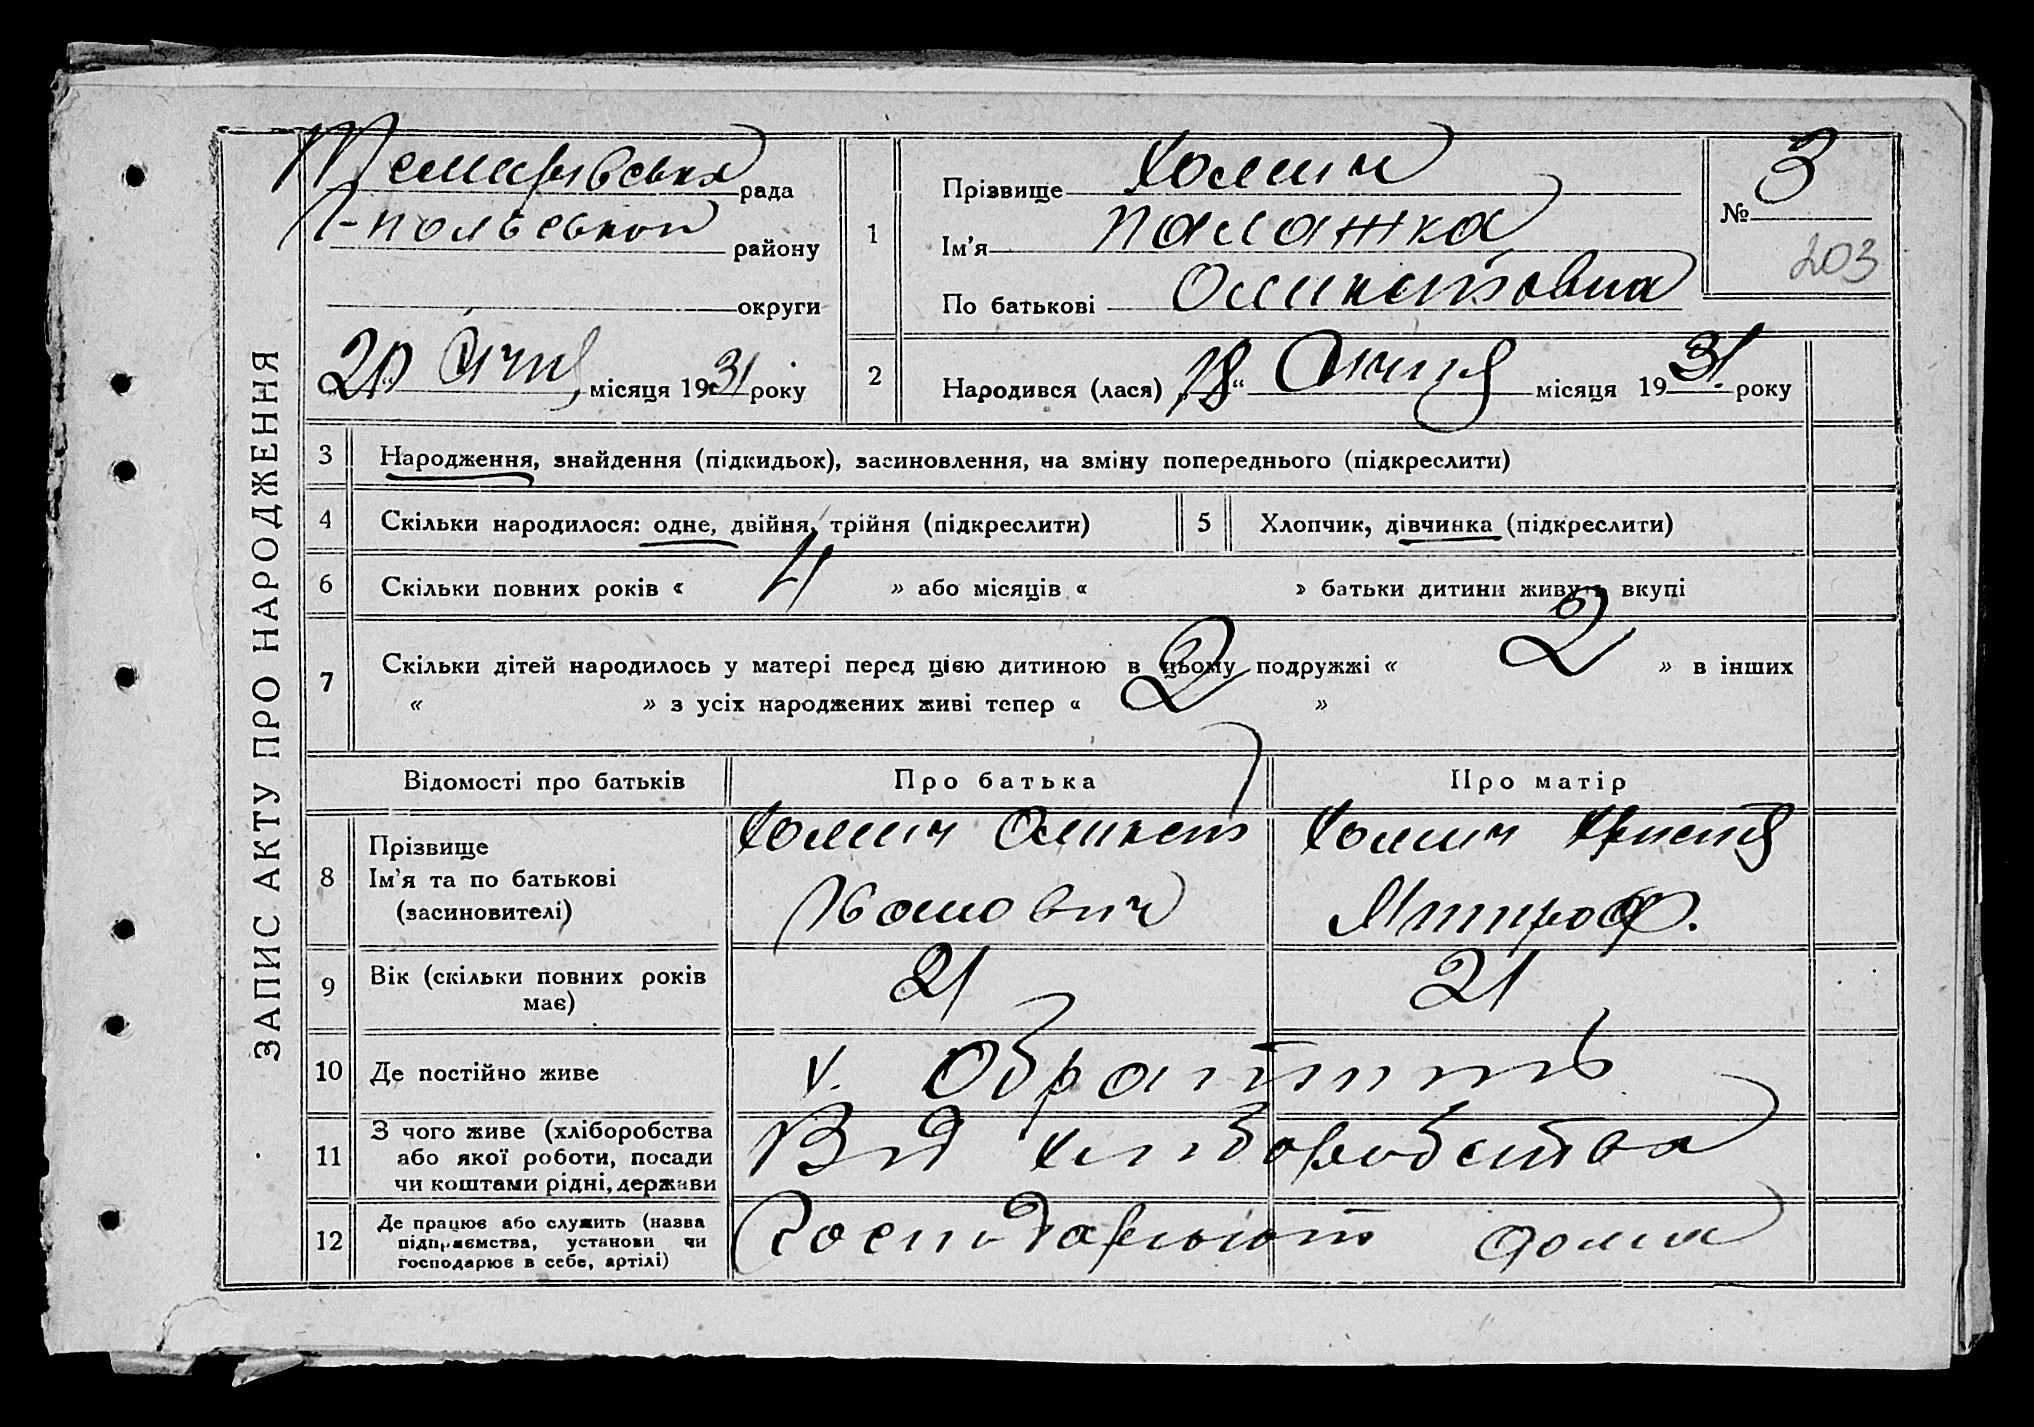 ЗАПИС АКТУ ПРО НАРОДЖЕННЯ
Темирівська рада
Г-польського району
округи
20 січня місяця 1931 року
1
Прізвище Холмич
Ім'я Палажка
По батькові Оликстовна
№ 3
203
2 Народився (лася) „18“ Січня місяця 1931 року
3 Народження, знайдення (підкидьок), засиновлення, на зміну попереднього (підкреслити)
4 Скільки народилося: одне, двійня, трійня (підкреслити) 5 Хлопчик, дівчинка (підкреслити)
6 Скільки повних років « 4 » або місяців « » батьки дитини живуть вкупі
7 Скільки дітей народилось у матері перед цією дитиною в цьому подружжі « 2 » в інших
« » з усіх народжених живі тепер « 2 »
Відомості про батьків Про батька Про матір
8 Прізвище
Ім'я та по батькові
(засиновителі)
Холмич Оликст Холмич Христя
Іванович Митроф.
9 Вік (скільки повних років
має)
21 21
10 Де постійно живе
11 З чого живе (хліборобства
або якої роботи, посади
чи коштами рідні, держави
Від хліборобства
12 Де працює або служить (назва
підприємства, установи чи
господарює в себе, артілі)
дома